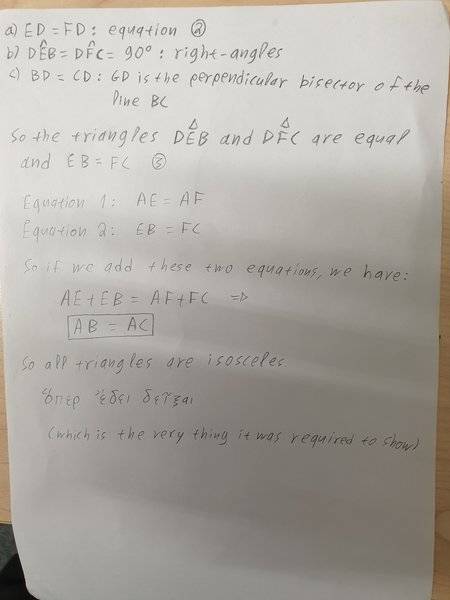 a) ED = FD : equation ②
b) DÊB = DF̂C = 90° : right-angles
c) BD = CD : GD is the perpendicular bisector of the
line BC
So the triangles DÊB and DF̂C are equal
and EB = FC ③
Equation 1: AE = AF
Equation 2: EB = FC
So if we add these two equations, we have:
AE + EB = AF + FC ⇒
AB = AC
So all triangles are isosceles.
ὅπερ ἔδει δεῖξαι
(which is the very thing it was required to show)